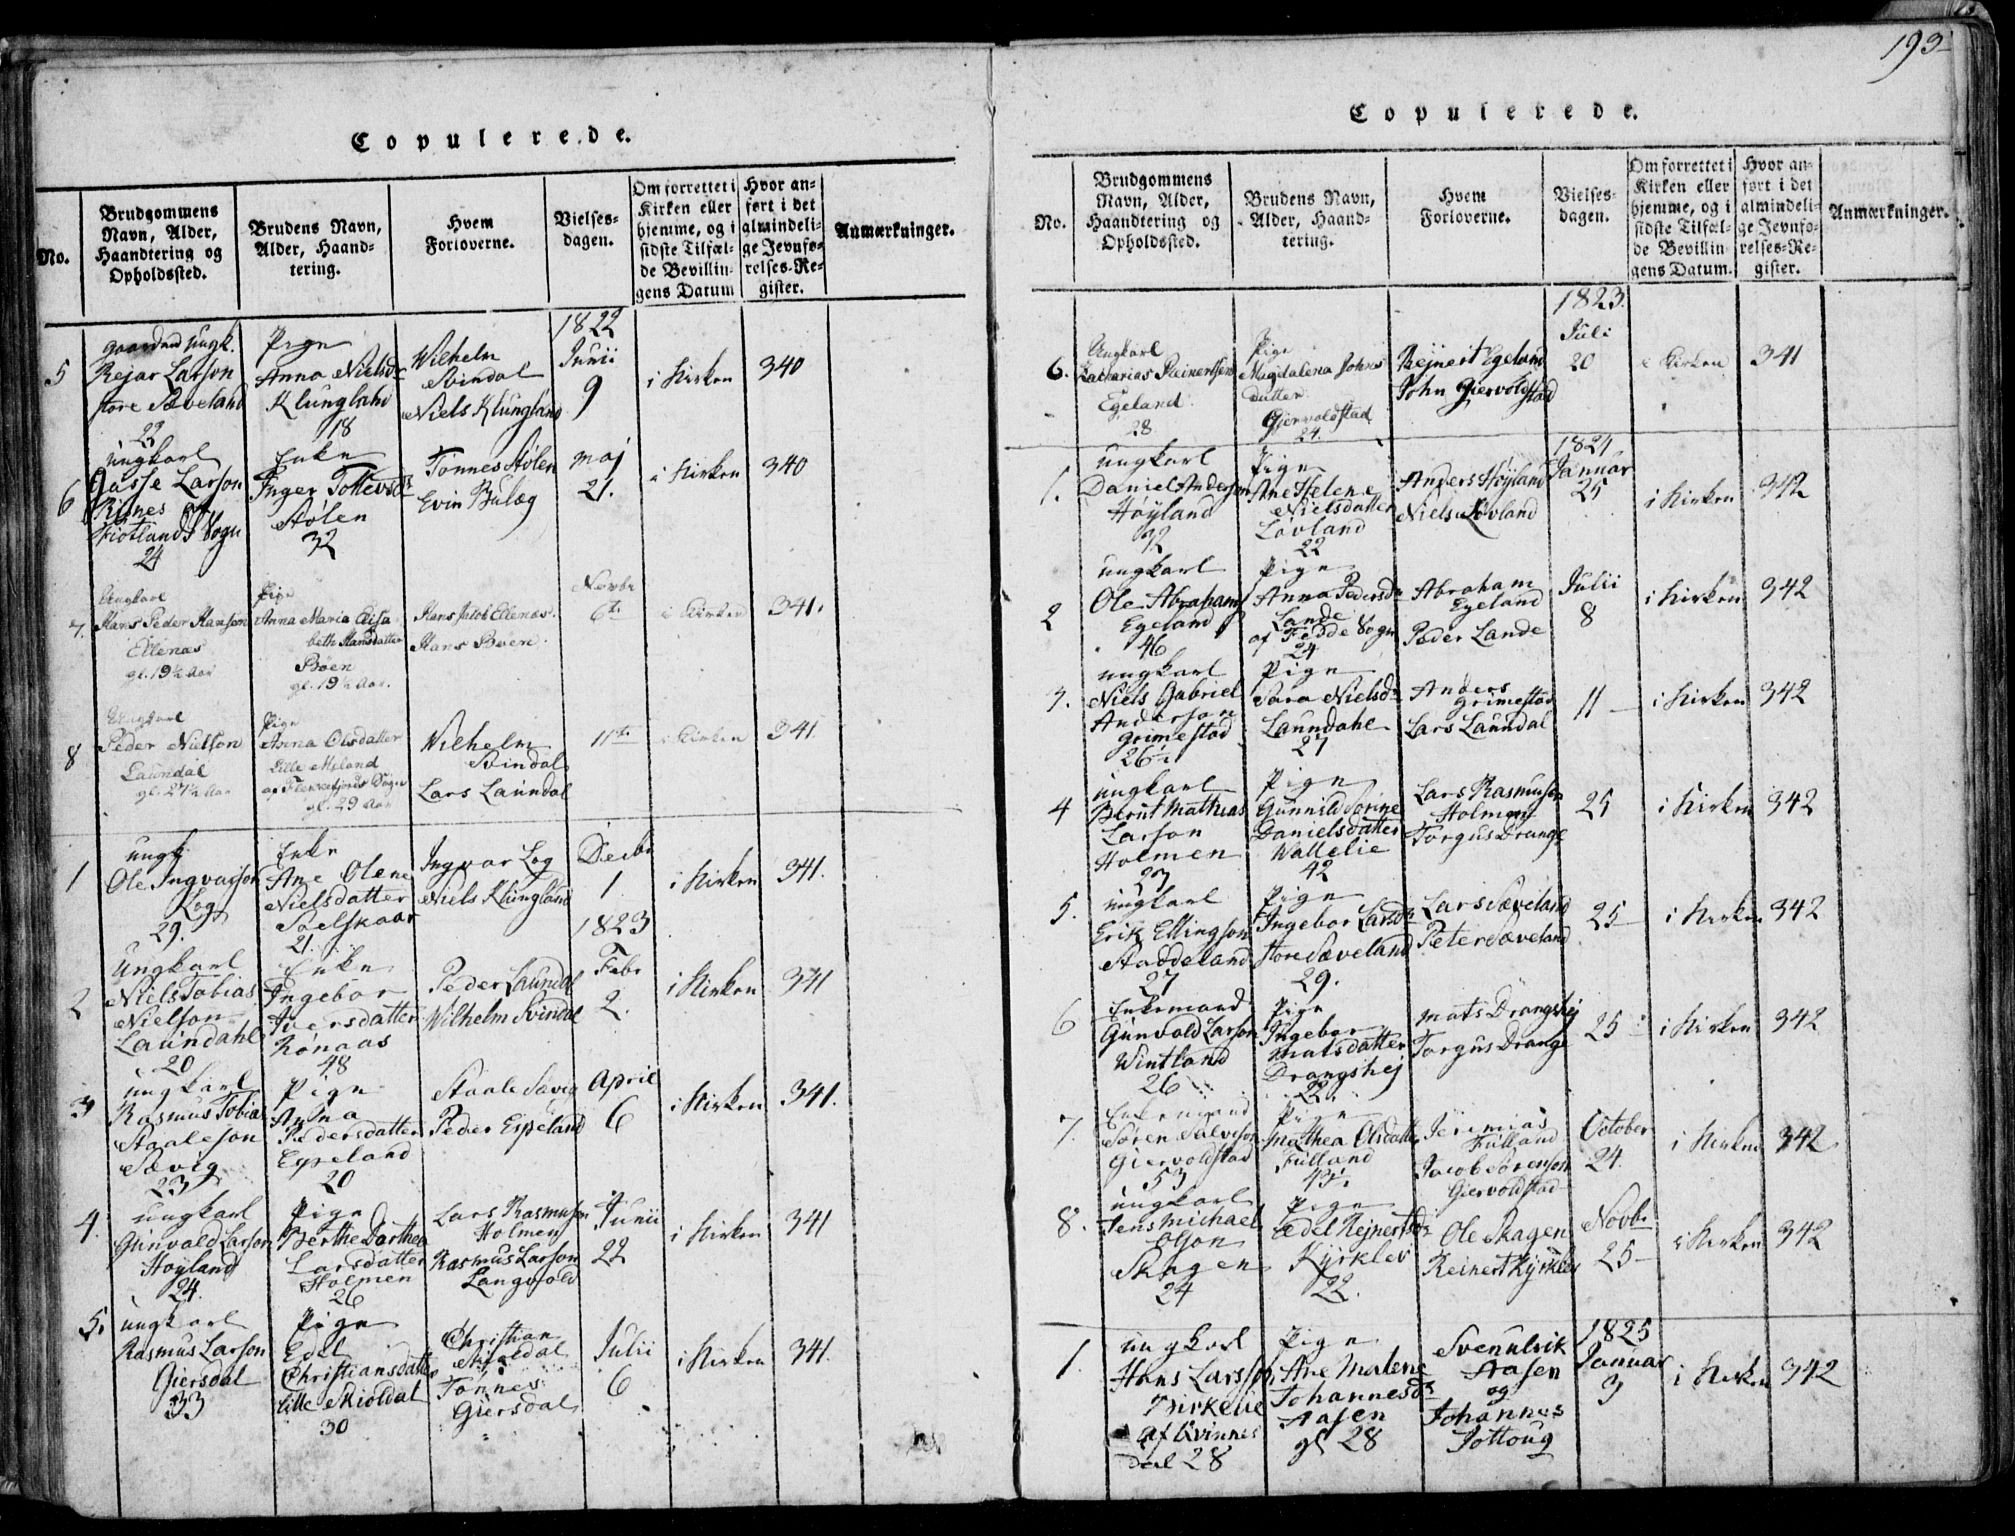 193
Copulerede.
No.
Brudgommens
Navn, Alder,
Haandtering og
Opholdssted.
Brudens Navn,
Alder, Haand-
tering.
Hvem
Forloverne.
Vielses-
dagen.
Om forrettet i
Kirken eller
hjemme, og i
sidste Tilfæl-
de Bevillin-
gens Datum
Hvor an-
ført i det
almindeli-
ge Jevnfø-
relses-Re-
gister.
Anmærkninger.
1822
5
Gaardmd ungk.
Rejar Larson
store Sæveland
23
Pige
Anna Nielsdr
Klungland
18
Wilhelm
Svindal
Niels Klungland
Junii
9
i Kirken
340
6
ungkarl
Gasse Larson
24
Enke
Inger
Stølen
32
Tønnes Stølen
Maj
21.
i Kirken
340
7.
Ungkarl
Hans Peder Hanson
Ellenæs
gl. 19½ Aar
Pige
Anna Maria Elisa
beth Hansdatter
Bøen
gl. 19½ Aar.
Hans Jacob Ellenæs.
Hans Bøen.
Novbr
6te
i Kirken
341.
8
Ungkarl
Peder Nielson
Laundal
gl. 27½ Aar
Pige
Anna Olsdatter
Lille Meland
gl. 29 Aar
Wilhelm
Svindal
Lars Laundal
11te
i Kirken
341
1
ungk.
Ole Ingvarson
Log
29.
Enke
Ane Olene
Nielsdatter
Sselskaar
21.
Ingvar Log
Niels Klungland
Decbr
1.
i Kirken
341.
1823
2
Ungkarl
Niels Tobias
Nielson
Laundahl
20
Enke
Ingebor
Iversdatter
Rønaas
48
Peder Laundal
Wilhelm Svindal
Febr
2.
i Kirken
341
3
ungkarl
Rasmus Tobias
Staaleson
Sævig
23
Pige
Anna
Pedersdatter
Espeland
20
Staale Sævig
Peder Espeland
April
6
i Kirken
341.
4.
ungkarl
Gunvald Larson
Høyland
24.
Pige
Berthe Dorthea
Larsdatter
Holmen
26
Lars Rasmuson
Holmen
Rasmus Larson
Langvold
Junii
22
i Kirken
341
5.
ungkarl
Rasmus Larson
Giersdal
33
Pige
Edel
Christiansdatter
Lille Skioldal
30
Christian
Skioldal
Tønnes
Giersdal
Julii
6
i Kirken
341.
Copulerede.
No.
Brudgommens
Navn, Alder,
Haandtering og
Opholdssted.
Brudens Navn,
Alder, Haand-
tering.
Hvem
Forloverne.
Vielses-
dagen.
Om forrettet i
Kirken eller
hjemme, og i
sidste Tilfæl-
de Bevillin-
gens Datum.
Hvor an-
ført i det
almindeli-
ge Jevnfø-
relses-Re-
gister.
Anmærkninger.
1823.
6.
Ungkarl
Zacharias Reinertsen
Egeland
28
Pige
Magdalena Johns
datter
Gjervoldstad
24.
Rejnert Egeland
John Giervoldstad
Juli
20
i Kirken
341
1824
1.
ungkarl
Daniel Anderson
Høyland
32
Pige
Ane Helene
Nielsdatter
Løvland
22
Anders Høyland
Niels Løvland
Januar
25
i Kirken
342
2
ungkarl
Ole Abrahams
Egeland
46
Pige
Anna Pedersdr
Lande
af Fedde Sogn
24
Abraham
Egeland
Peder Lande
Julii
8
i Kirken
342
3.
ungkarl
Niels Gabriel
Anderson
Grimestad
26½
Pige
Sara Nielsdr
Laundahl
27
Anders
Grimestad
Lars Laundal
11
i Kirken
342
4
ungkarl
Bernt Mathias
Larson
Holmen
27
Pige
Gunnild Sorine
Danielsdatter
Wallelie
42
Lars Rasmuson
Holmen
Torgus Drange
25
i Kirken
342
5.
ungkarl
Erik Ellingson
Staddeland
27
Pige
Ingebor Larsdr
store Sæveland
29.
Lars Sæveland
Peter Sæveland
25
i Kirken
342
6
Enkemand
Gunvald Larson
Wintland
26
Pige
Ingebor
Matsdatter
Drangshej
22.
Mats Drangshej
Torgus Drange
25
i Kirken
342
7.
Enkemand
Søren Salveson
Giervoldstad
53
Pige
Mathea Olsdatter
Fulland
43.
Jeremias
Fulland
Jacob Sørenson
Giervoldstad
October
24.
i Kirken
342
8.
ungkarl
Jens Michael
Olson
Skagen
24
Pige
Edel Rejnertsdr
Kyrklev
22.
Ole Skagen
Reinert Kyrklev
Novbr
25
i Kirken
342
1825
1.
ungkarl
Hans Larsson
Birkelie
af Qvinnes
dal 28
Pige
Ane Malene
Johannesdr
Aasen
gl 28
Svenulrik
Aasen
og
Johannes
Jottoug
Januar
3
i Kirken
342